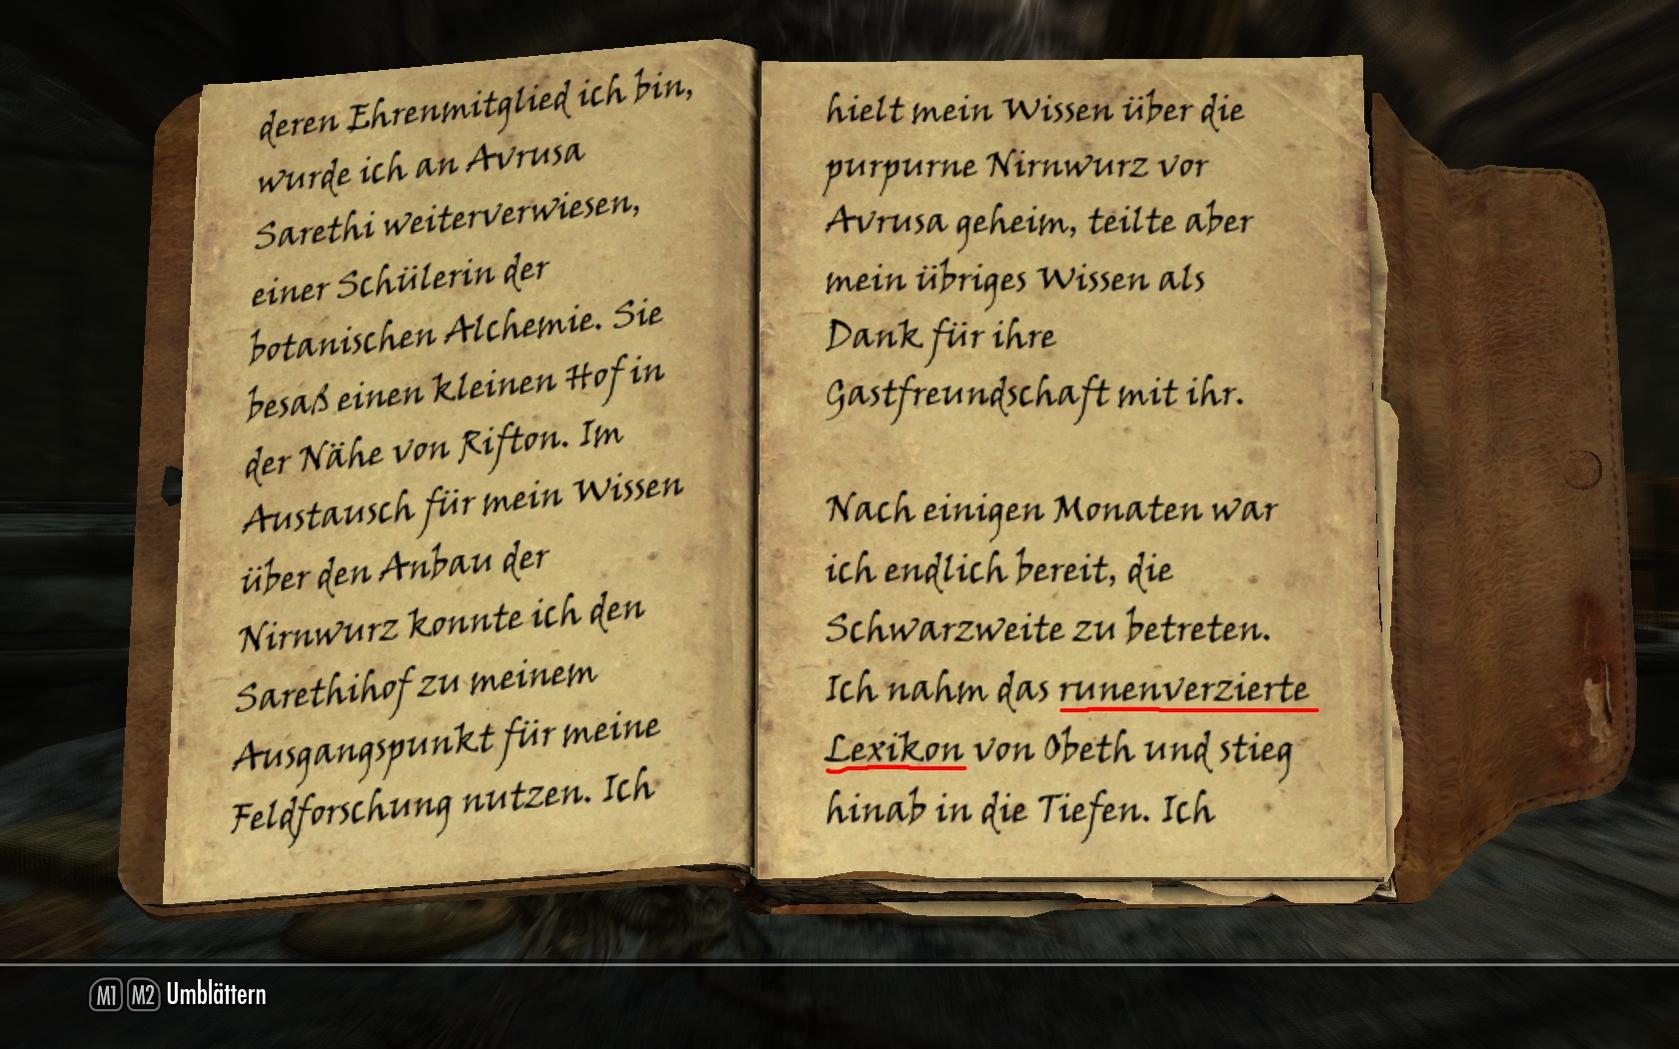 deren Ehrenmitglied ich bin,
wurde ich an Avrusa
Sarethi weiterverwiesen,
einer Schülerin der
botanischen Alchemie. Sie
besaß einen kleinen Hof in
der Nähe von Rifton. Im
Austausch für mein Wissen
über den Anbau der
Nirnwurz konnte ich den
Sarethihof zu meinem
Ausgangspunkt für meine
Feldforschung nutzen. Ich
hielt mein Wissen über die
purpurne Nirnwurz vor
Avrusa geheim, teilte aber
mein übriges Wissen als
Dank für ihre
Gastfreundschaft mit ihr.
Nach einigen Monaten war
ich endlich bereit, die
Schwarzweite zu betreten.
Ich nahm das runenverzierte
Lexikon von Obeth und stieg
hinab in die Tiefen. Ich
M1 M2 Umblättern